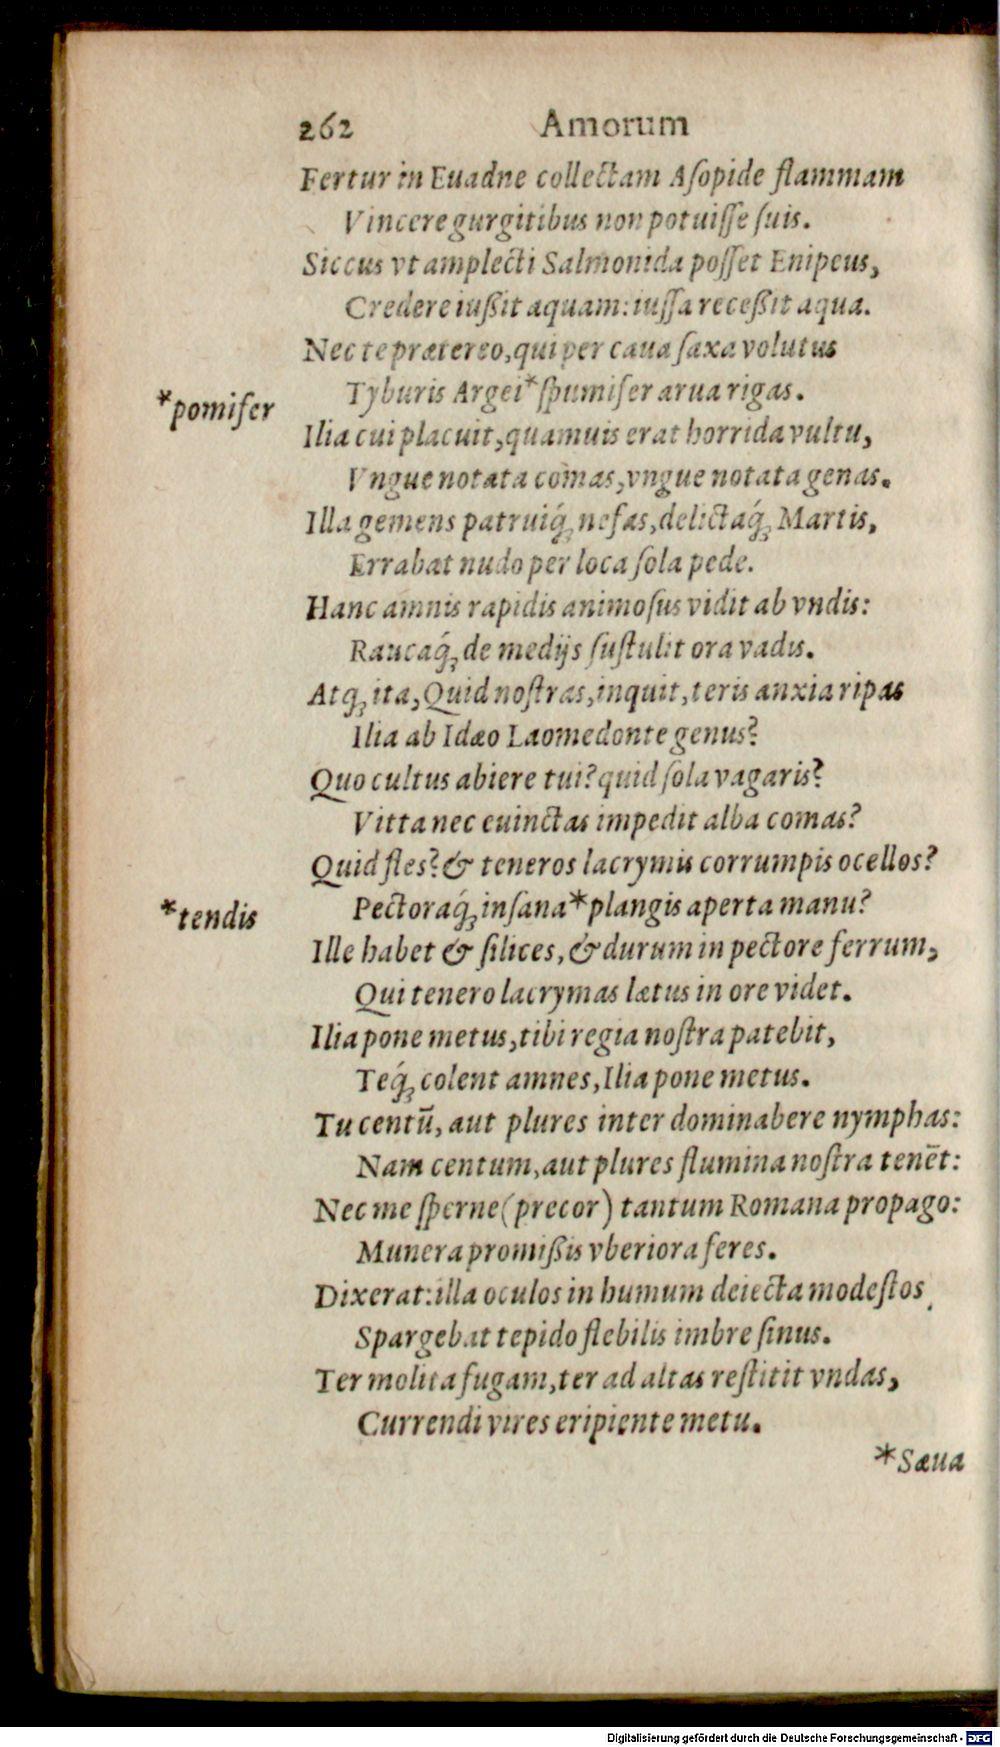 262 Amorum
Fertur in Euadne collectam Aſopide flammam
Vincere gurgitibus non potuiſſe ſuis.
Siccus vt amplecti Salmonida poſſet Enipeus,
Credere iußit aquam: iuſſa receßit aqua.
Nec te prætereo, qui per caua ſaxa volutus
Tyburis Argei *ſpumifer arua rigas.
*pomifer
Ilia cui placuit, quamuis erat horrida vultu,
Vngue notata comas, vngue notata genas.
Illa gemens patruiq́; nefas, delictaq́; Martis,
Errabat nudo per loca ſola pede.
Hanc amnis rapidis animoſus vidit ab vndis:
Raucaq́; de medijs ſuſtulit ora vadis.
Atq; ita, Quid noſtras, inquit, teris anxia ripas
Ilia ab Idæo Laomedonte genus?
Quo cultus abiere tui? quid ſola vagaris?
Vitta nec euinctas impedit alba comas?
Quid fles? & teneros lacrymis corrumpis ocellos?
Pectoraq́; inſana *plangis aperta manu?
*tendis
Ille habet & ſilices, & durum in pectore ferrum,
Qui tenero lacrymas lætus in ore videt.
Ilia pone metus, tibi regia noſtra patebit,
Teq́; colent amnes, Ilia pone metus.
Tu centū, aut plures inter dominabere nymphas:
Nam centum, aut plures flumina noſtra tenēt:
Nec me ſperne (precor) tantum Romana propago:
Munera promißis vberiora feres.
Dixerat: illa oculos in humum deiecta modeſtos
Spargebat tepido flebilis imbre ſinus.
Ter molita fugam, ter ad altas reſtitit vndas,
Currendi vires eripiente metu.
*Sæua
Digitalisierung gefördert durch die Deutsche Forschungsgemeinschaft - DFG